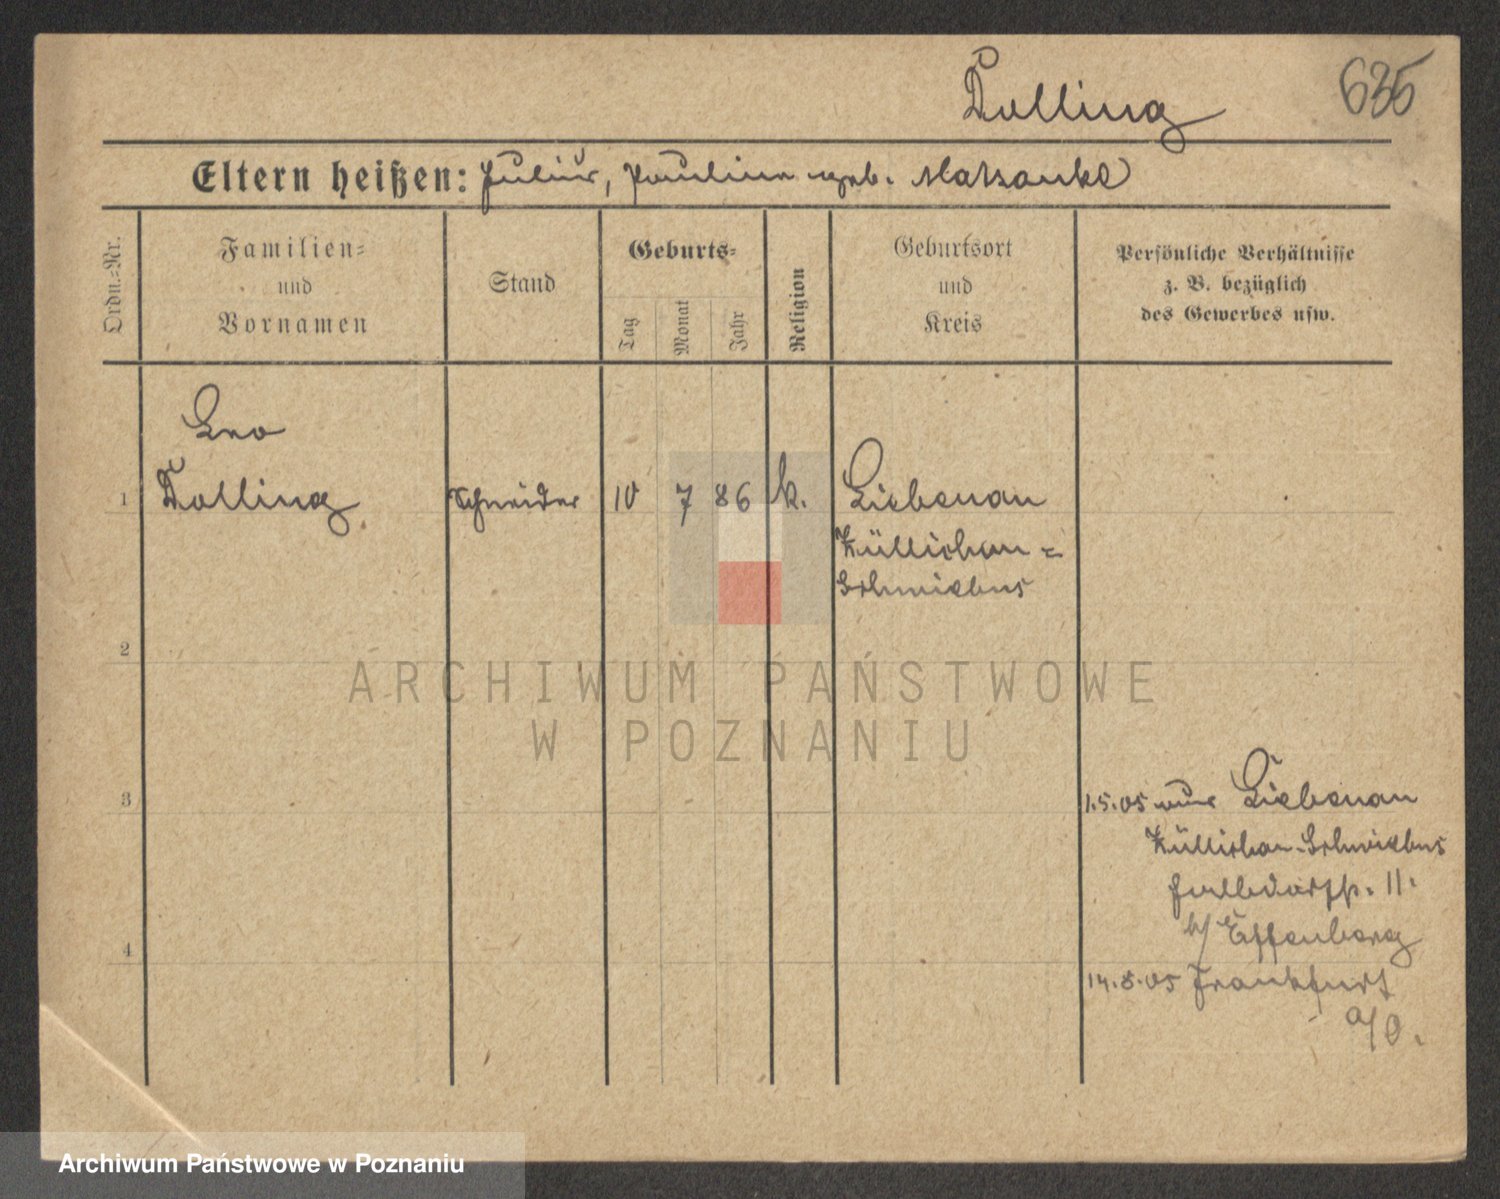 Dolling
635
Eltern heißen: Julius, Pauline geb. Matzanke
Ordn.=Nr.
Familien=
und
Vornamen
Stand
Geburts=
Tag
Monat
Jahr
Religion
Geburtsort
und
Kreis
Persönliche Verhältnisse
z. B. bezüglich
des Gewerbes usw.
Leo
1 Dolling Schneider 10 7 86 k. Liebenau
Züllichau=
Schwiebus
2
ARCHIWUM PAŃSTWOWE
W POZNANIU
3
1.5.05 Liebenau
Züllichau-Schwiebus
11.
b/ Effenberg
4
14.8.05 Frankfurt
a/O.
Archiwum Państwowe w Poznaniu